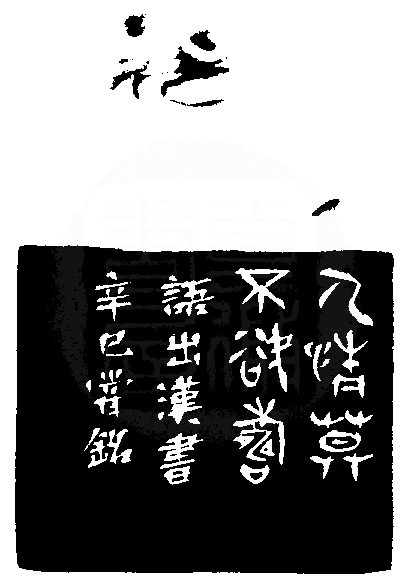 人情莫
不欲壽
語出漢書
辛巳